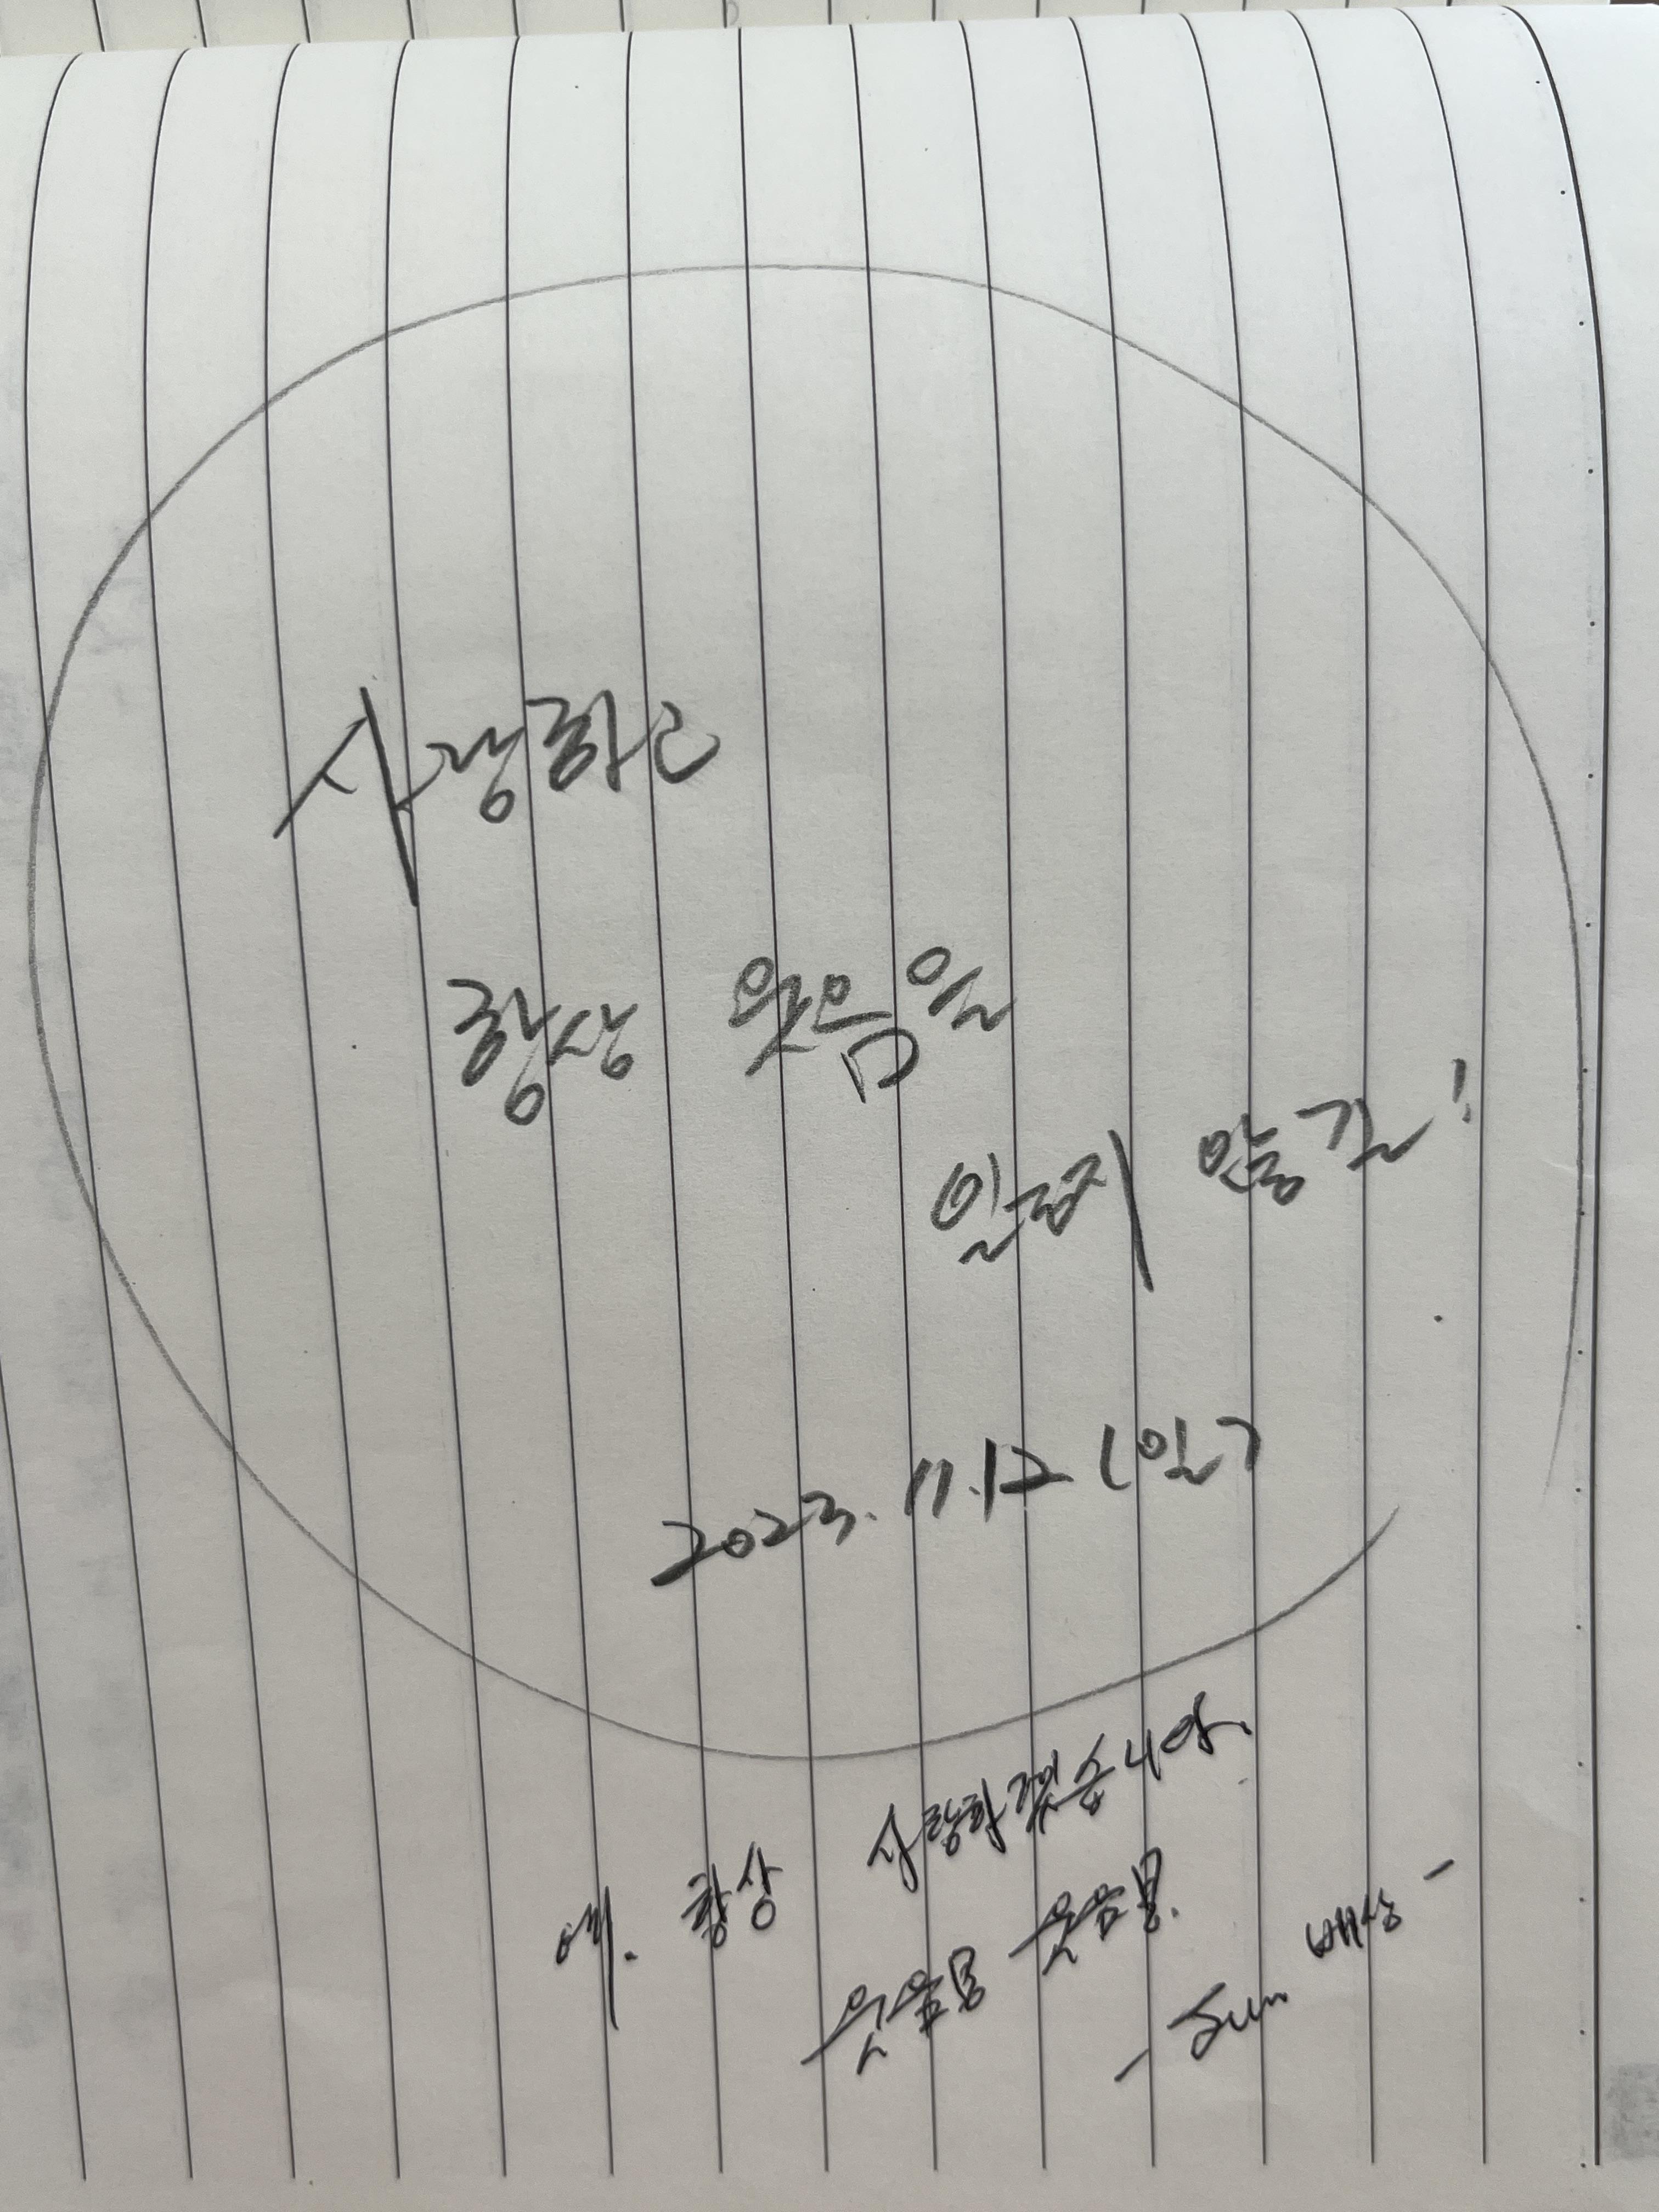 사랑하고
항상 웃음을
잃지 않길!
2023. 11. 12 (일)
예. 항상 사랑하겠습니다.
웃음
- Sun 배상 -